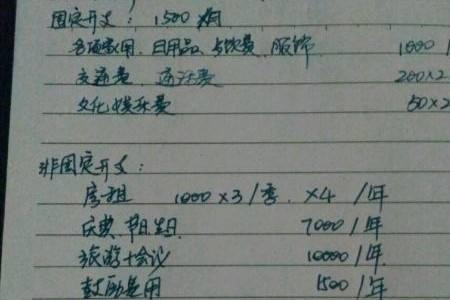 固定开支：1500/月
各项家用、日用品、餐饮费、服饰 1000/
交通费、通讯费 200×2
文化娱乐费 50×2
非固定开支：
房租 1000×3/季、×4/年
庆典、节日、生日 7000/年
旅游+会议 10000/年
鼓励费用 1500/年